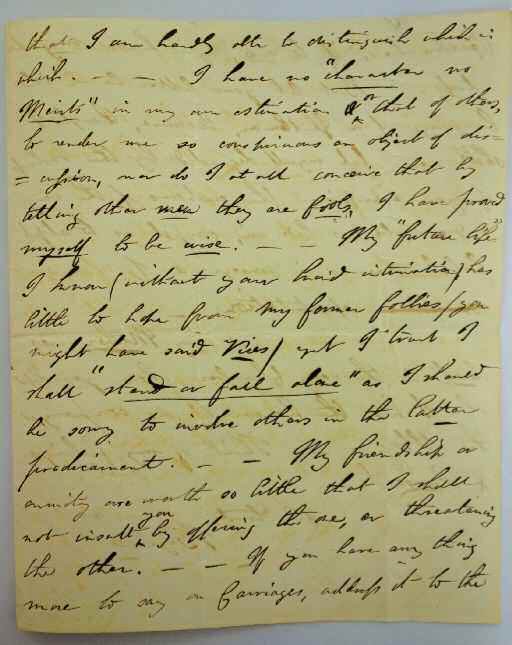 that I am hardly able to distinguish which is
which. — — I have no "character no
Merits" in my own estimation or that of others,
to render me so conspicuous an object of dis=
=cussion, nor do I at all conceive that by
telling other men they are fools, I have proved
myself to be wise. — — My "future life"
I know (without your kind intimation) has
little to hope from my former follies (you
might have said Vices) yet I trust I
shall "stand or fall alone" as I should
be sorry to involve others in the latter
predicament. — — My friendship or
enmity are worth so little that I shall
not insult you by offering the one, or threatening
the other. — — If you have any thing
more to say on Carriages, address it to the